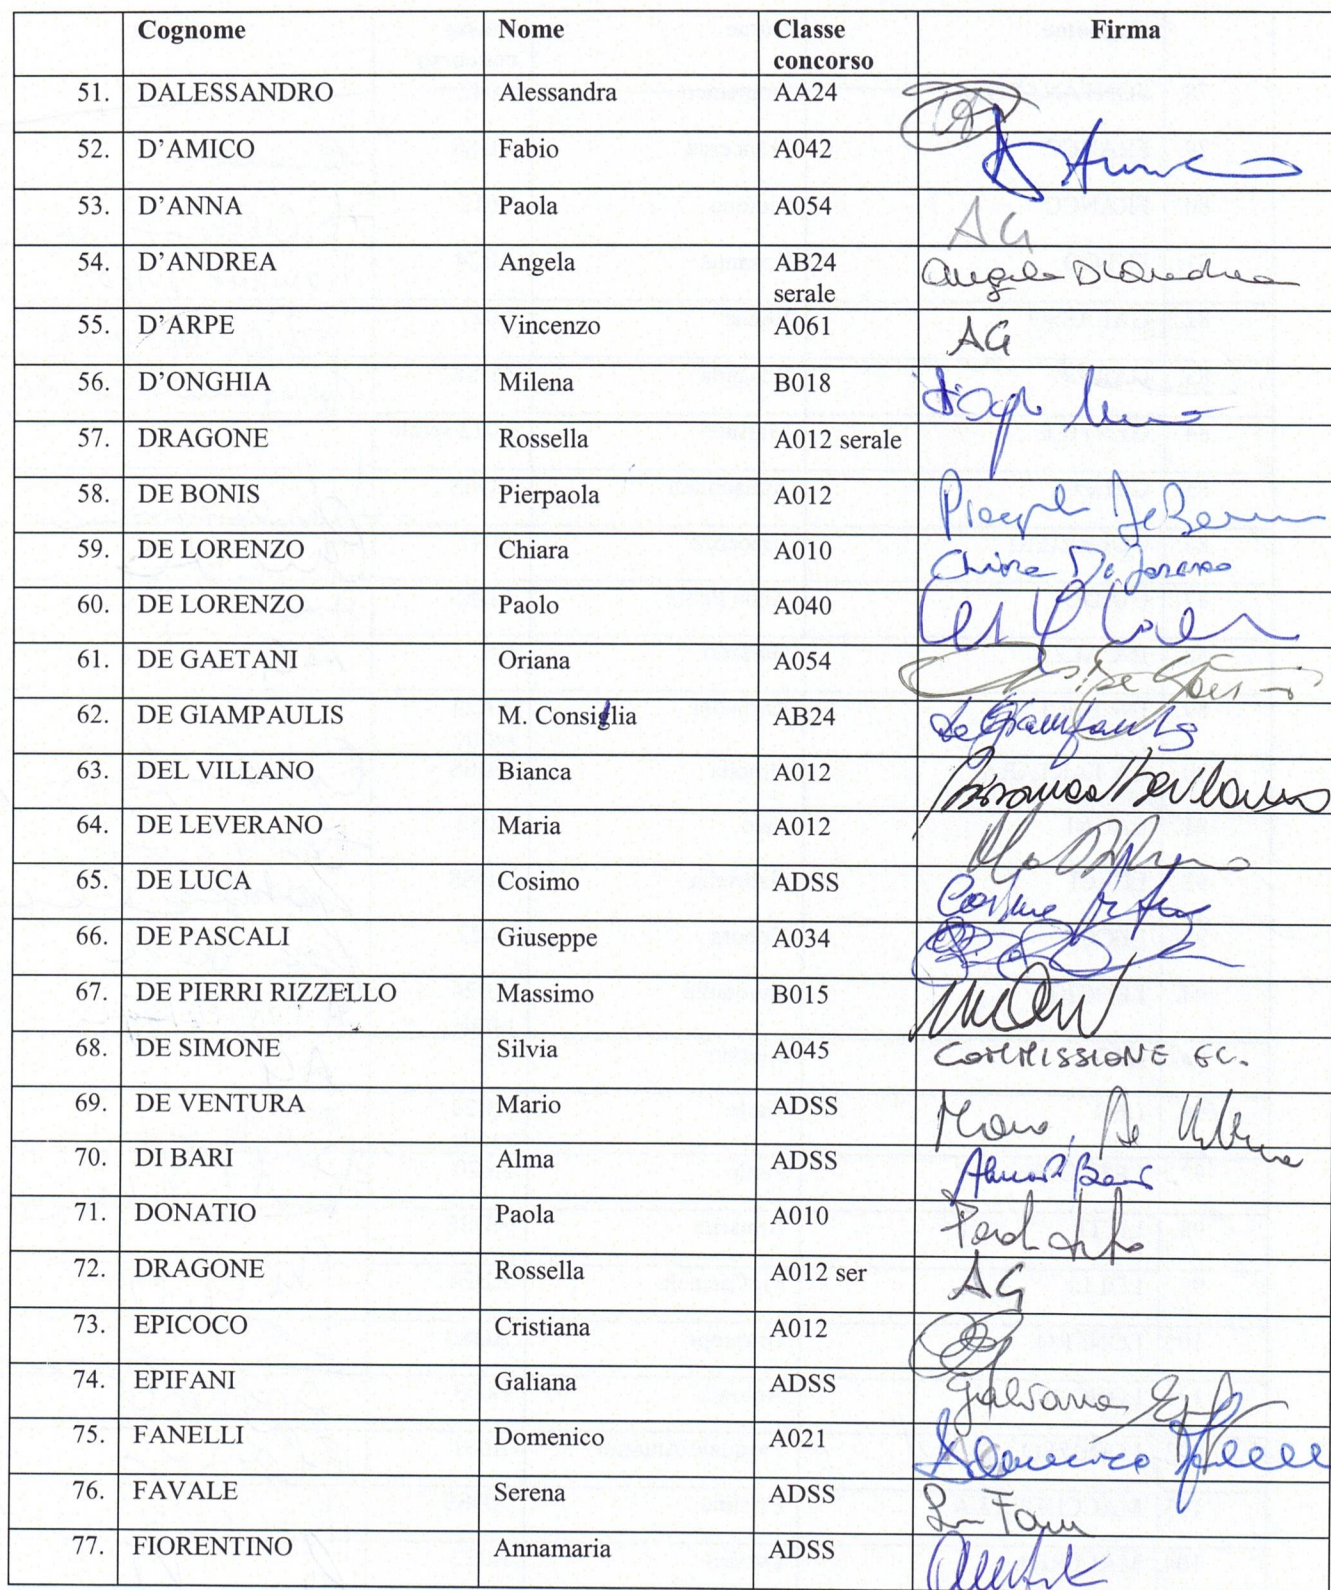 Cognome Nome Classe concorso Firma
51. DALESSANDRO Alessandra AA24
52. D'AMICO Fabio A042
53. D'ANNA Paola A054 AG
54. D'ANDREA Angela AB24 serale Angela D'Andrea
55. D'ARPE Vincenzo A061 AG
56. D'ONGHIA Milena B018
57. DRAGONE Rossella A012 serale
58. DE BONIS Pierpaola A012
59. DE LORENZO Chiara A010 Chiara De Lorenzo
60. DE LORENZO Paolo A040
61. DE GAETANI Oriana A054
62. DE GIAMPAULIS M. Consiglia AB24 De Giampaulis
63. DEL VILLANO Bianca A012
64. DE LEVERANO Maria A012
65. DE LUCA Cosimo ADSS
66. DE PASCALI Giuseppe A034
67. DE PIERRI RIZZELLO Massimo B015
68. DE SIMONE Silvia A045 COMMISSIONE EL.
69. DE VENTURA Mario ADSS
70. DI BARI Alma ADSS Alma Di Bari
71. DONATIO Paola A010
72. DRAGONE Rossella A012 ser AG
73. EPICOCO Cristiana A012
74. EPIFANI Galiana ADSS
75. FANELLI Domenico A021 Domenico Fanelli
76. FAVALE Serena ADSS
77. FIORENTINO Annamaria ADSS